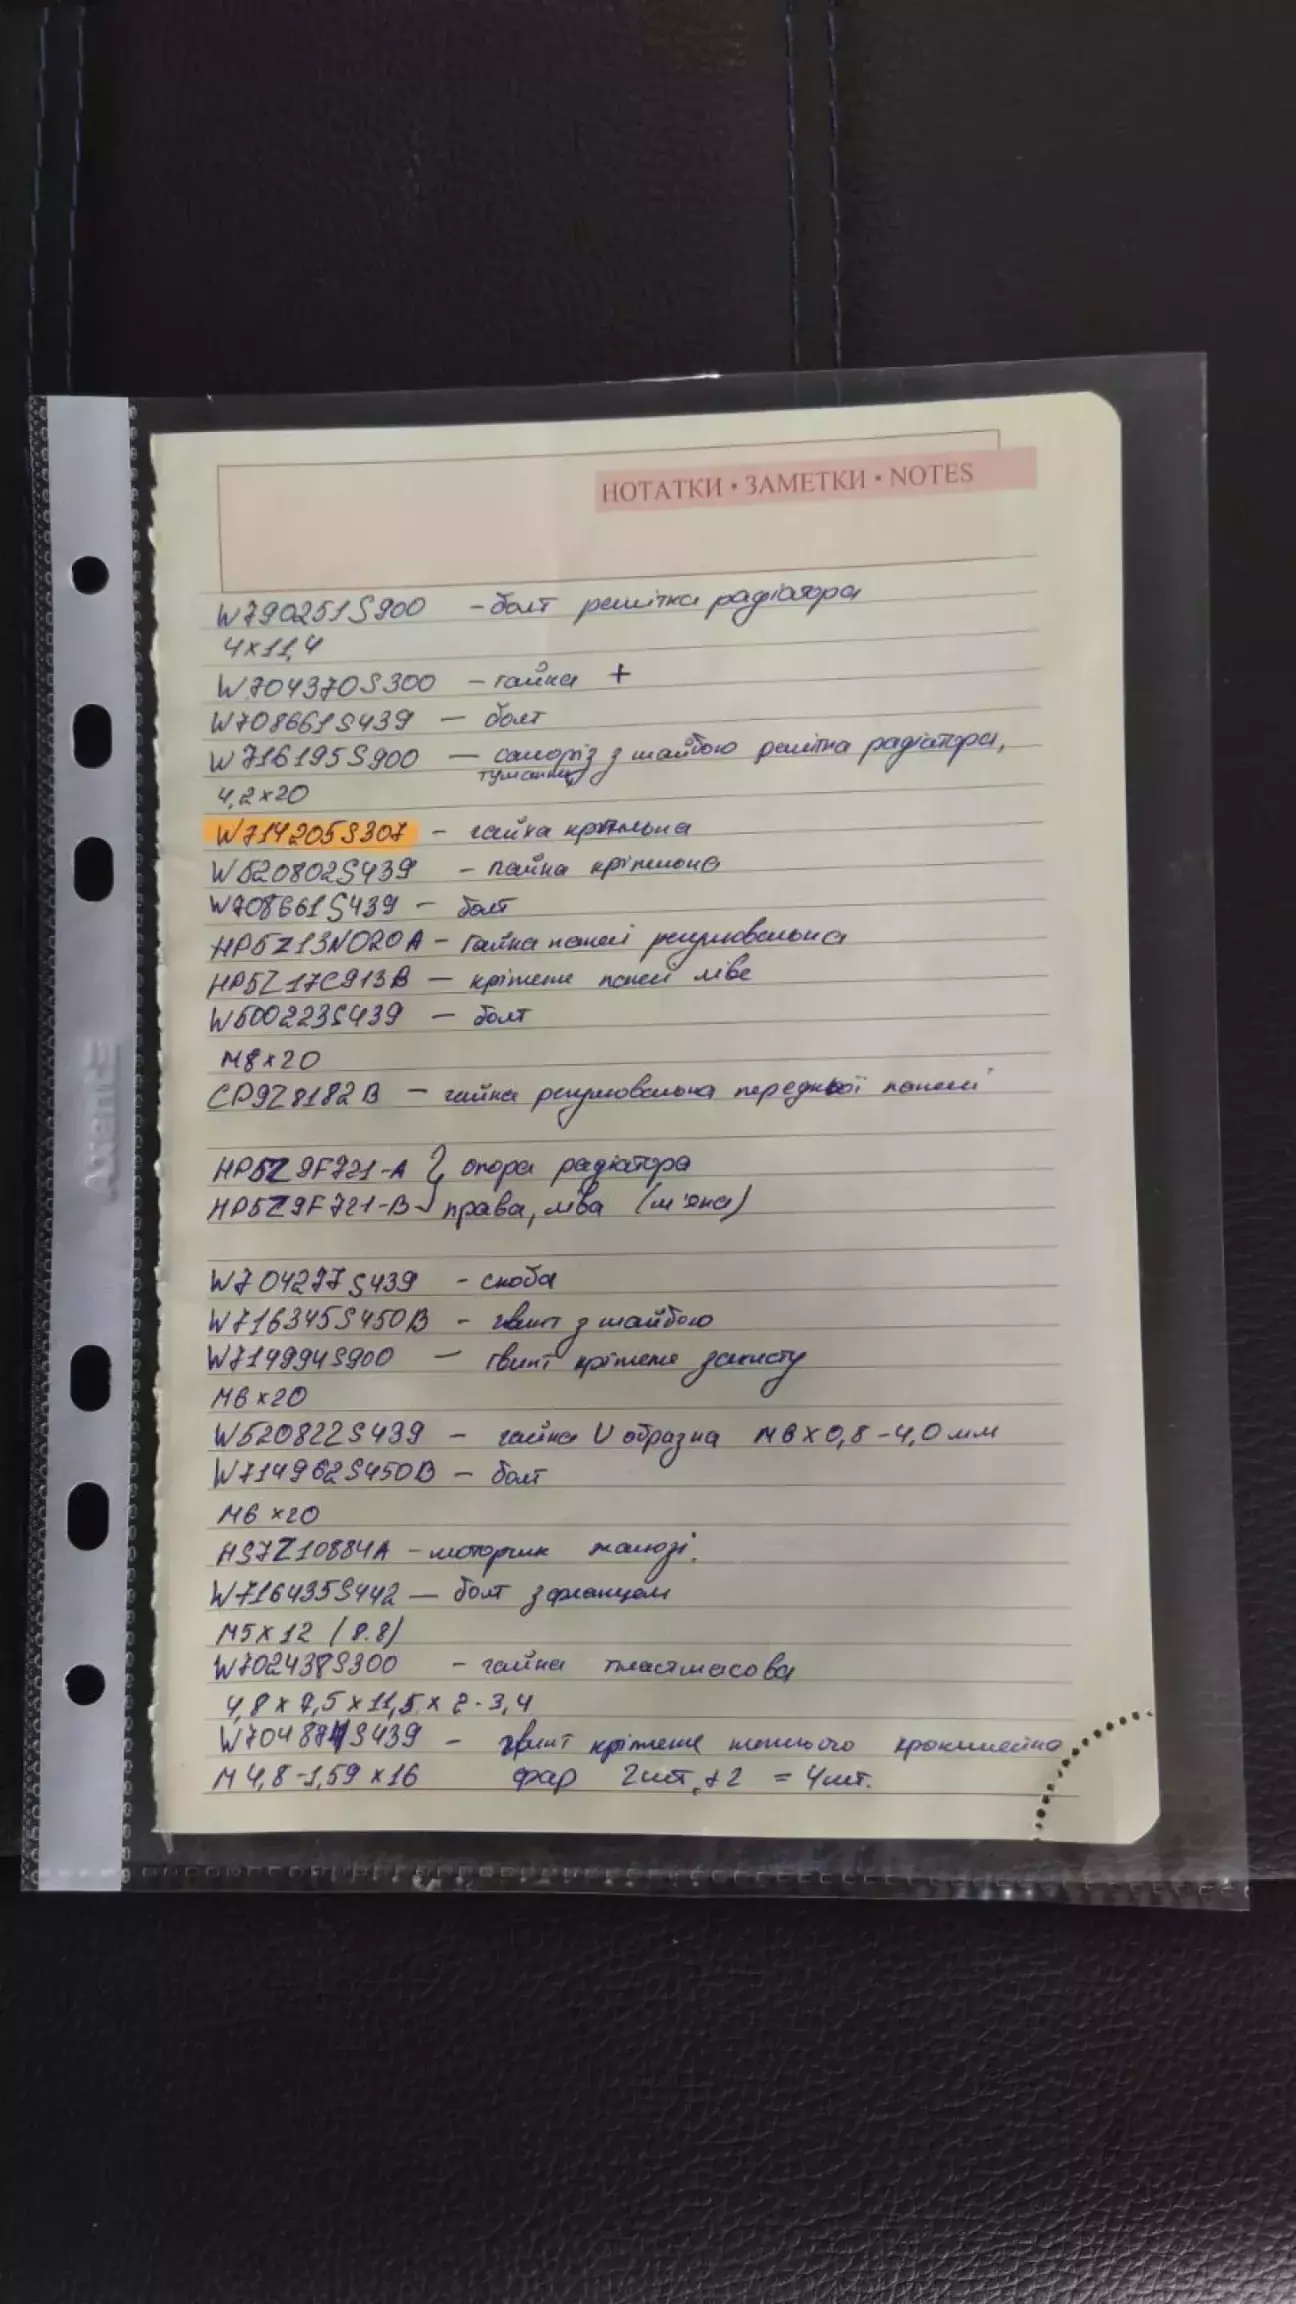 НОТАТКИ • ЗАМЕТКИ • NOTES
W790251S900 - болт решітка радіатора
4x11,4
W704370S300 - гайка +
W708661S439 - болт
W716195S900 - саморіз з шайбою решітка радіатора,
туманки
4,2x20
W714205S307 - гайка кріпильна
W520802S439 - гайка кріпильна
W708661S439 - болт
HP5Z13N020A - гайка панелі регулювальна
HP5Z17C913B - кріплене панелі ліве
W500223S439 - болт
M8x20
CP9Z8182B - гайка регулювальна передньої панелі
HP5Z9F721-A } опора радіатора
HP5Z9F721-B } права, ліва (м'яка)
W704277S439 - скоба
W716345S450B - гвинт з шайбою
W714994S900 - гвинт кріплене захисту
M6x20
W520822S439 - гайка U образна M6x0,8-4,0мм
W714962S450B - болт
M6x20
HS7Z10884A - моторчик жалюзі.
W716435S442 - болт з фланцем
M5x12 (8.8)
W702438S300 - гайка пластмасова
4,8x7,5x11,5x2-3,4
S439 - гвинт кріплене кронштейна
M4,8-1,59x16 фар 2шт.+2 = 4шт.
Axent